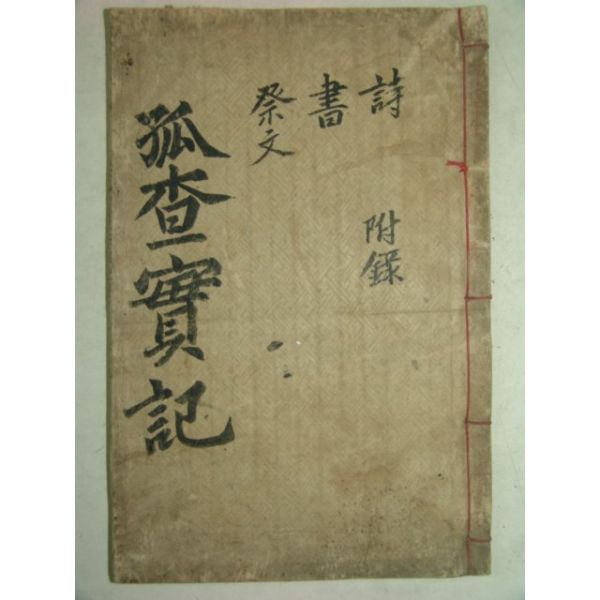 詩 附錄
書
祭文
孤查實記